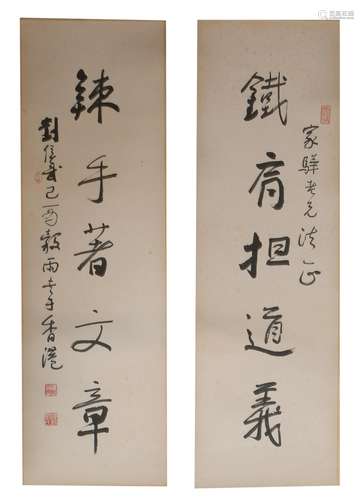 家驛老兄法正
鐵肩担道義
辣手著文章
劉 己酉穀雨書于香港